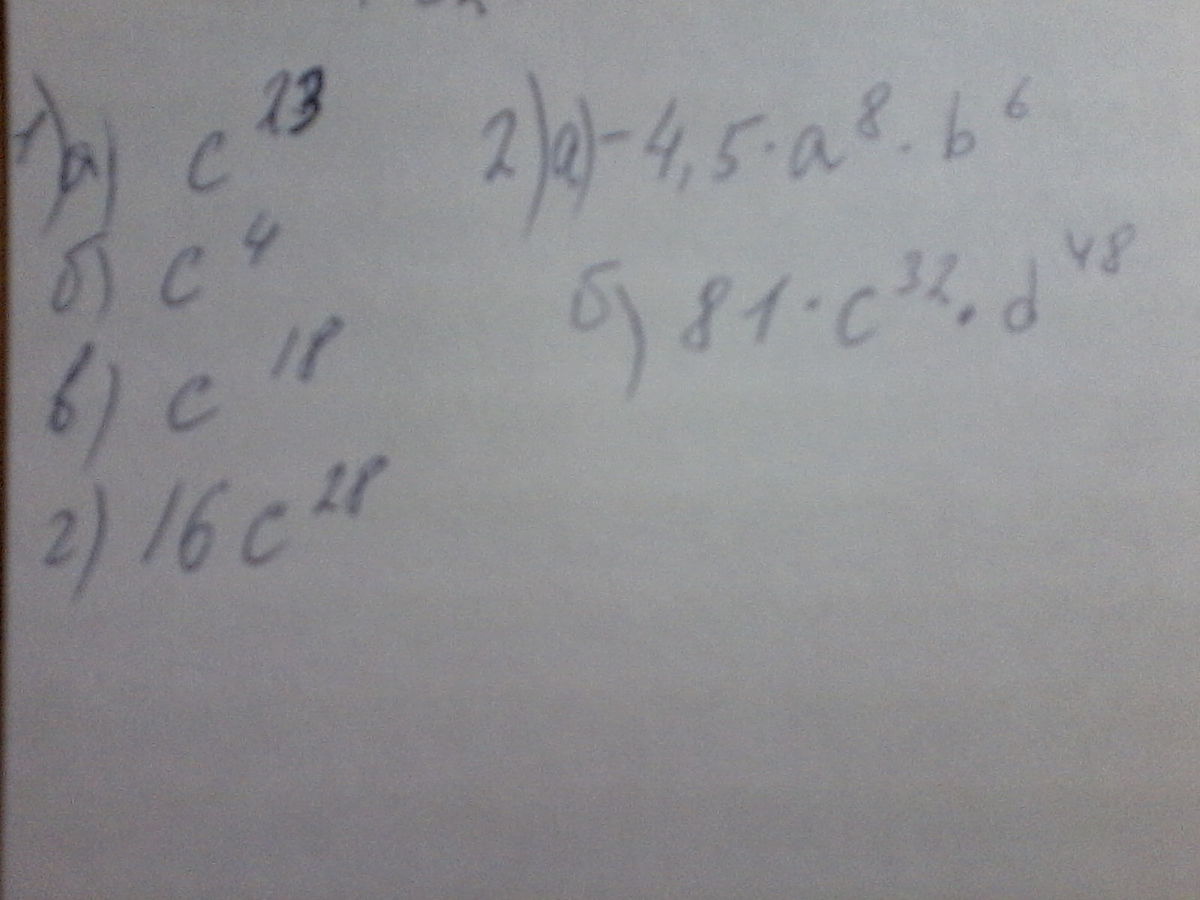 1) а) c^13
б) c^4
в) c^18
г) 16c^28
2) а) -4,5·a^8·b^6
б) 81·c^32·d^48